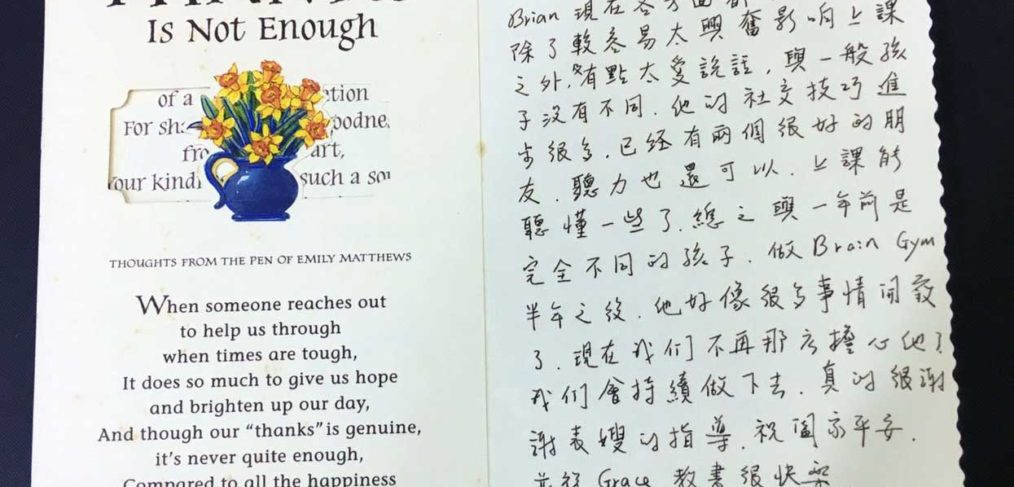 Is Not Enough
of a ction
For sh oodne
fro art,
our kind such a so
THOUGHTS FROM THE PEN OF EMILY MATTHEWS
When someone reaches out
to help us through
when times are tough,
It does so much to give us hope
and brighten up our day,
And though our “thanks” is genuine,
it's never quite enough,
Compared to all the happiness
Brian 現在各方面都
除了較容易太興奮影响上課
之外, 有點太愛說話, 與一般孩
子沒有不同. 他的社交技巧進
步很多, 已经有兩個很好的朋
友. 聽力也還可以. 上課能
聽懂一些了. 總之與一年前是
完全不同的孩子. 做 Brain Gym
半年之後, 他好像很多事情開竅
了. 現在我们不再那么擔心他了
我们會持續做下去. 真的很謝
謝表嫂的指導. 祝闔家平安.
並祝 Grace 教書很快樂